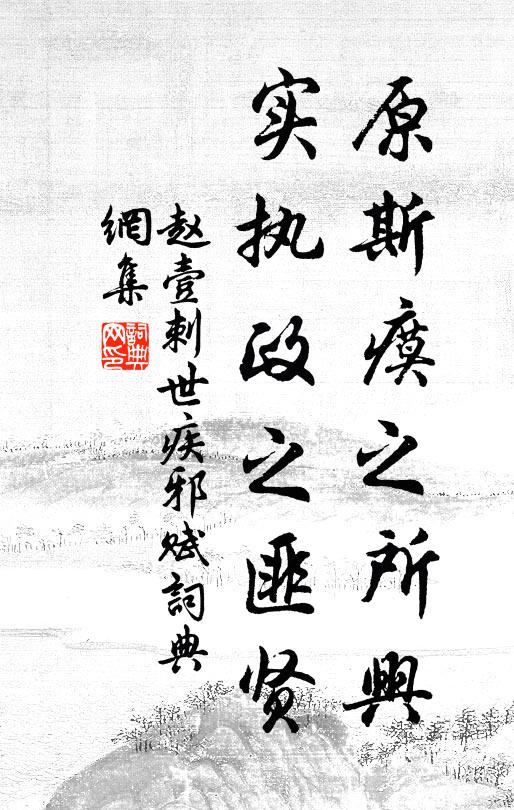 原斯瘼之所興
实执政之匪贤
赵壹刺世疾邪赋詞典
網集
詞典
网印